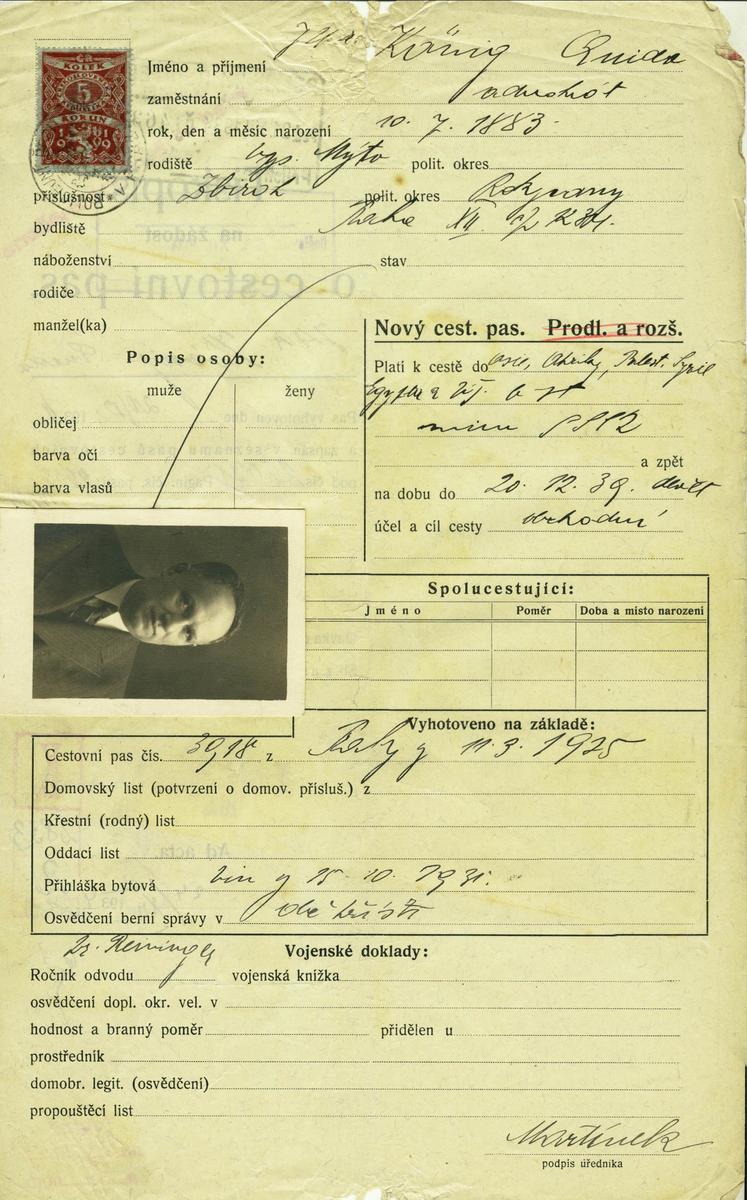 ČS.
KOLEK
5
KORUN
Jméno a příjmení König Guido
zaměstnání advokát
rok, den a měsíc narození 10. 7. 1883.
rodiště Mýto polit. okres
příslušnost Zbiroh polit. okres Rokycany
bydliště Praha XII
náboženství stav
rodiče
manžel(ka)
Popis osoby:
muže ženy
obličej
barva očí
barva vlasů
Nový cest. pas. Prodl. a rozš.
Platí k cestě do Palest. Syrie
a zpět
na dobu do 20. 12. 39.
účel a cíl cesty obchodní
Spolucestující:
Jméno Poměr Doba a místo narození
Vyhotoveno na základě:
Cestovní pas čís. 3918 z Prahy 11. 3. 1925
Domovský list (potvrzení o domov. přísluš.) z
Křestní (rodný) list
Oddací list
Přihláška bytová 15. 10. 1931.
Osvědčení berní správy v
Vojenské doklady:
Ročník odvodu vojenská knížka
osvědčení dopl. okr. vel. v
hodnost a branný poměr přidělen u
prostředník
domobr. legit. (osvědčení)
propouštěcí list
Martínek
podpis úředníka